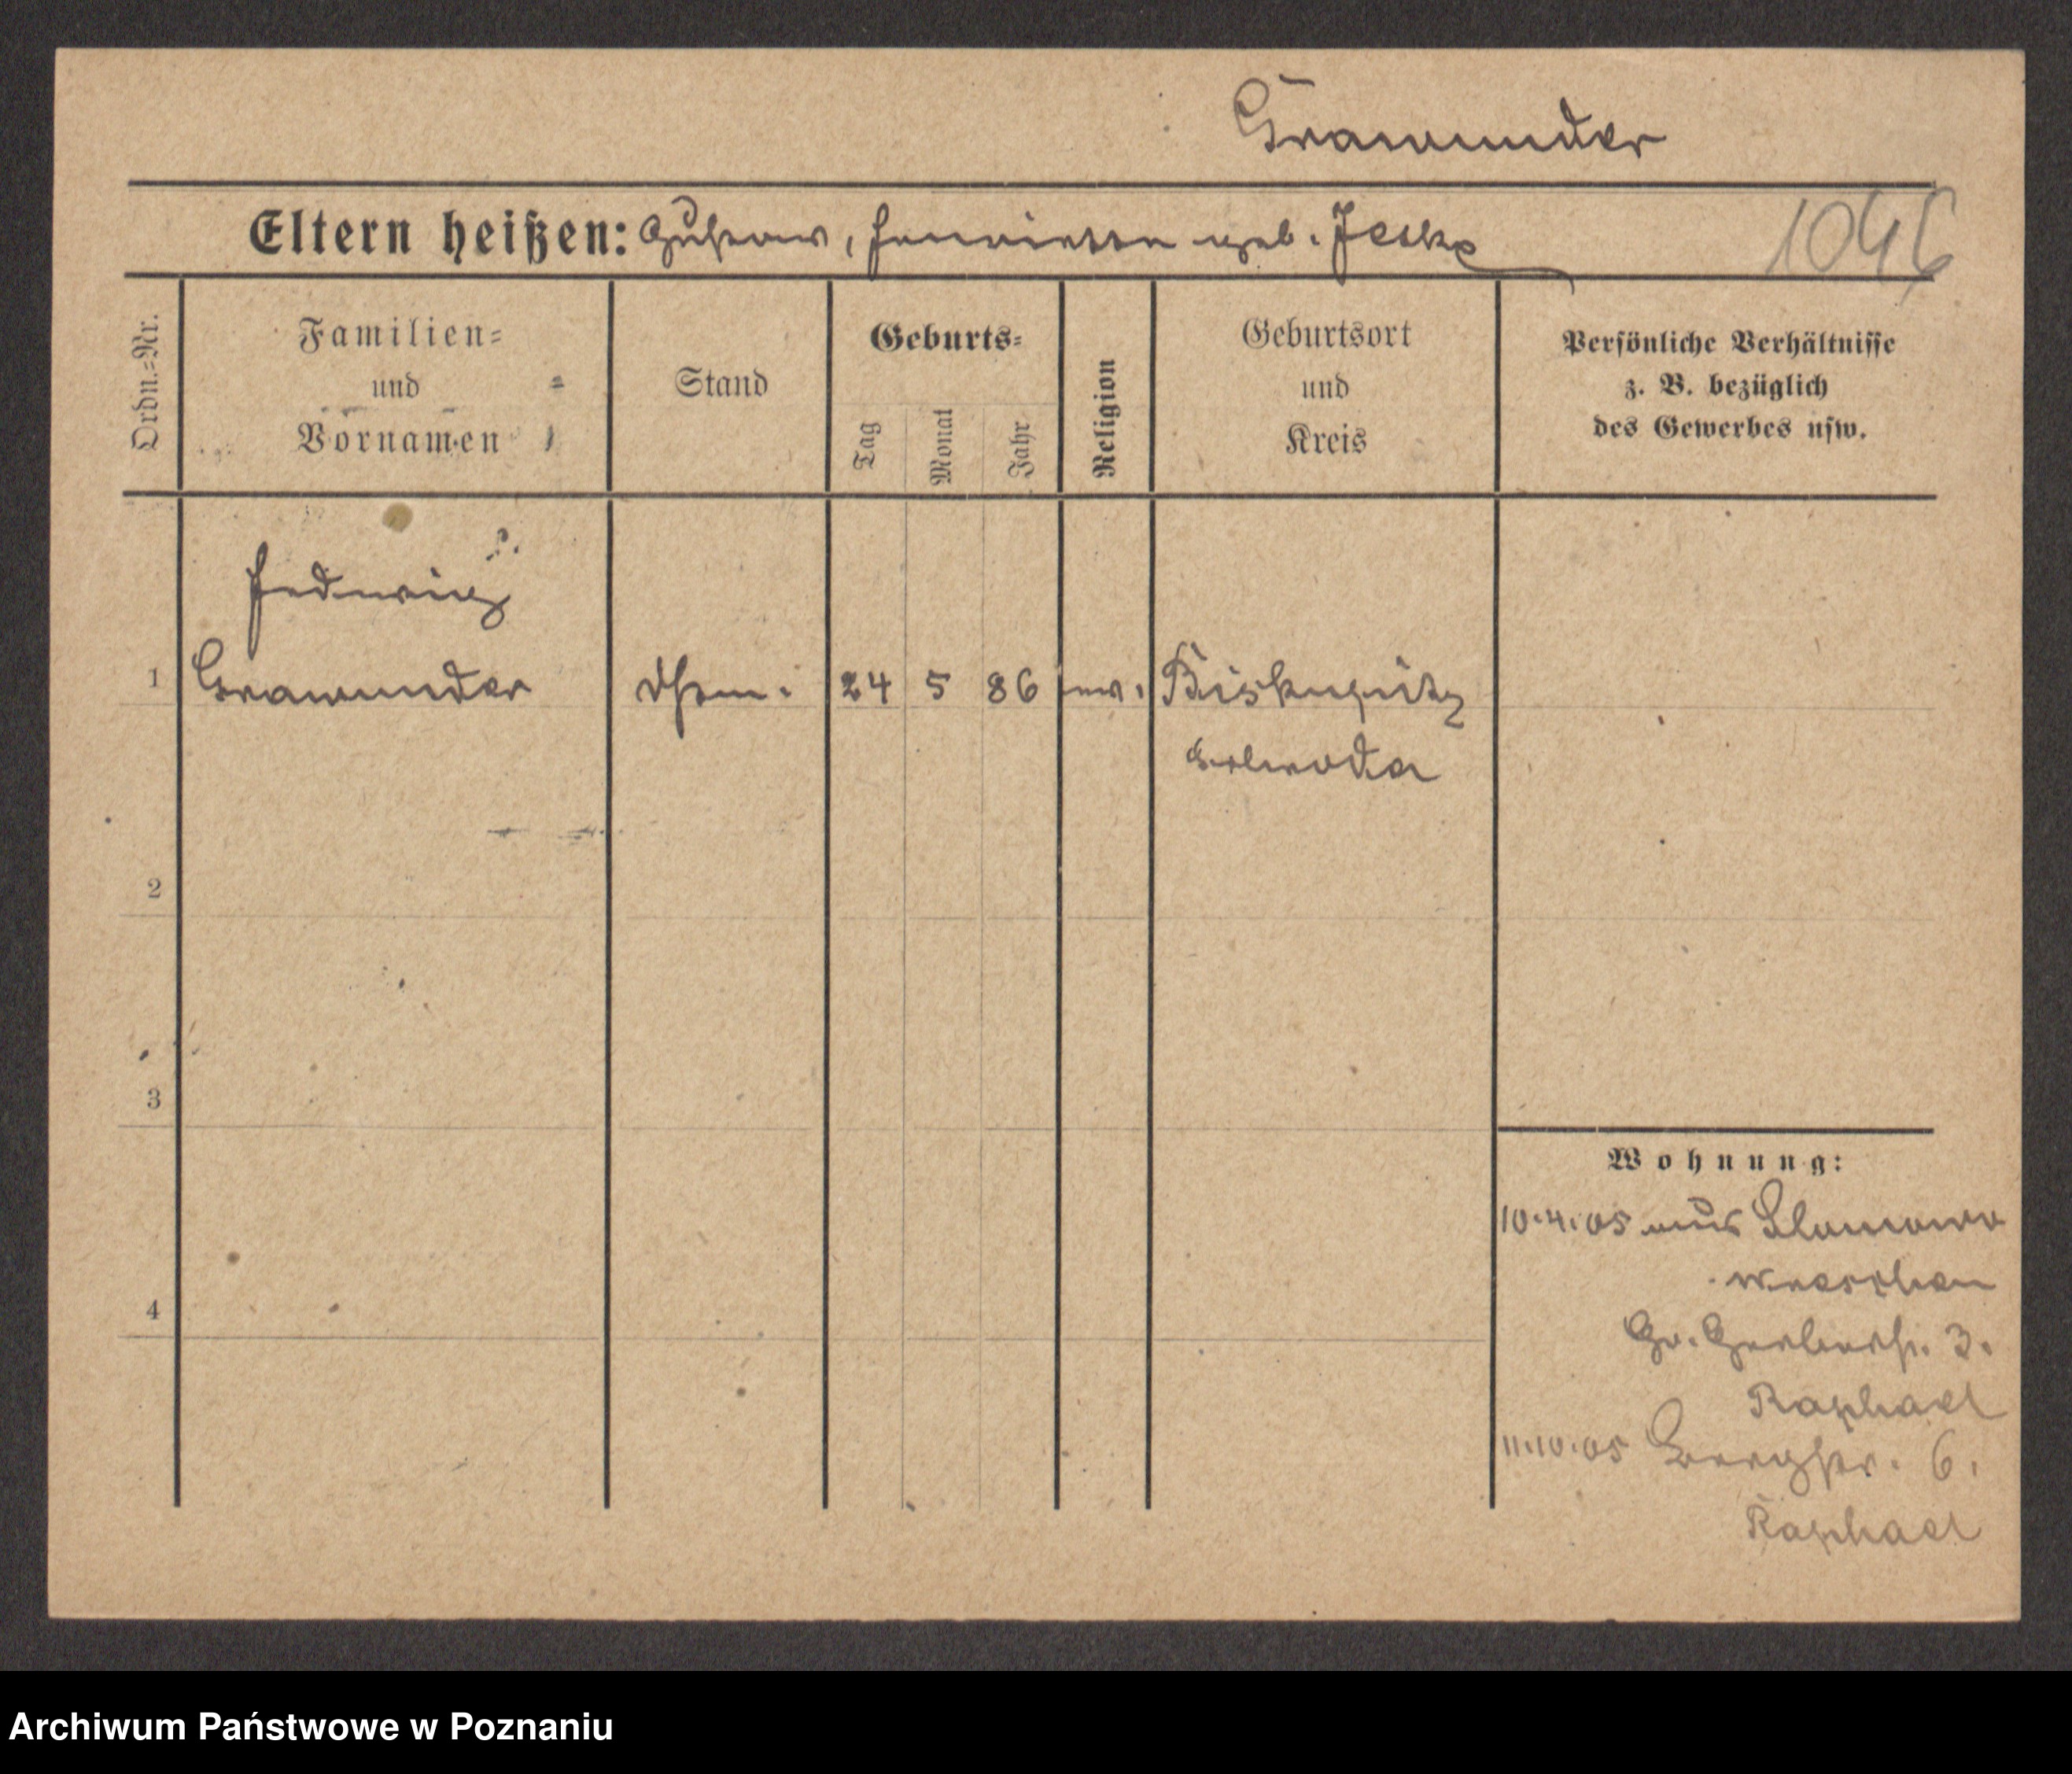 Grawunder
Eltern heißen: Gustav, Henriette geb. Jeske
1046
Ordn.=Nr.
Familien=
und
Vornamen
Stand
Geburts=
Tag
Monat
Jahr
Religion
Geburtsort
und
Kreis
Persönliche Verhältnisse
z. B. bezüglich
des Gewerbes usw.
Hedwig
1 Grawunder 24 5 86 ev. Biskupitz
Schroda
2
3
4
Wohnung:
10.4.05 aus
Wreschen
Gr. Gerberstr. 3.
Raphael
11.10.05 Bergstr. 6.
Raphael
Archiwum Państwowe w Poznaniu